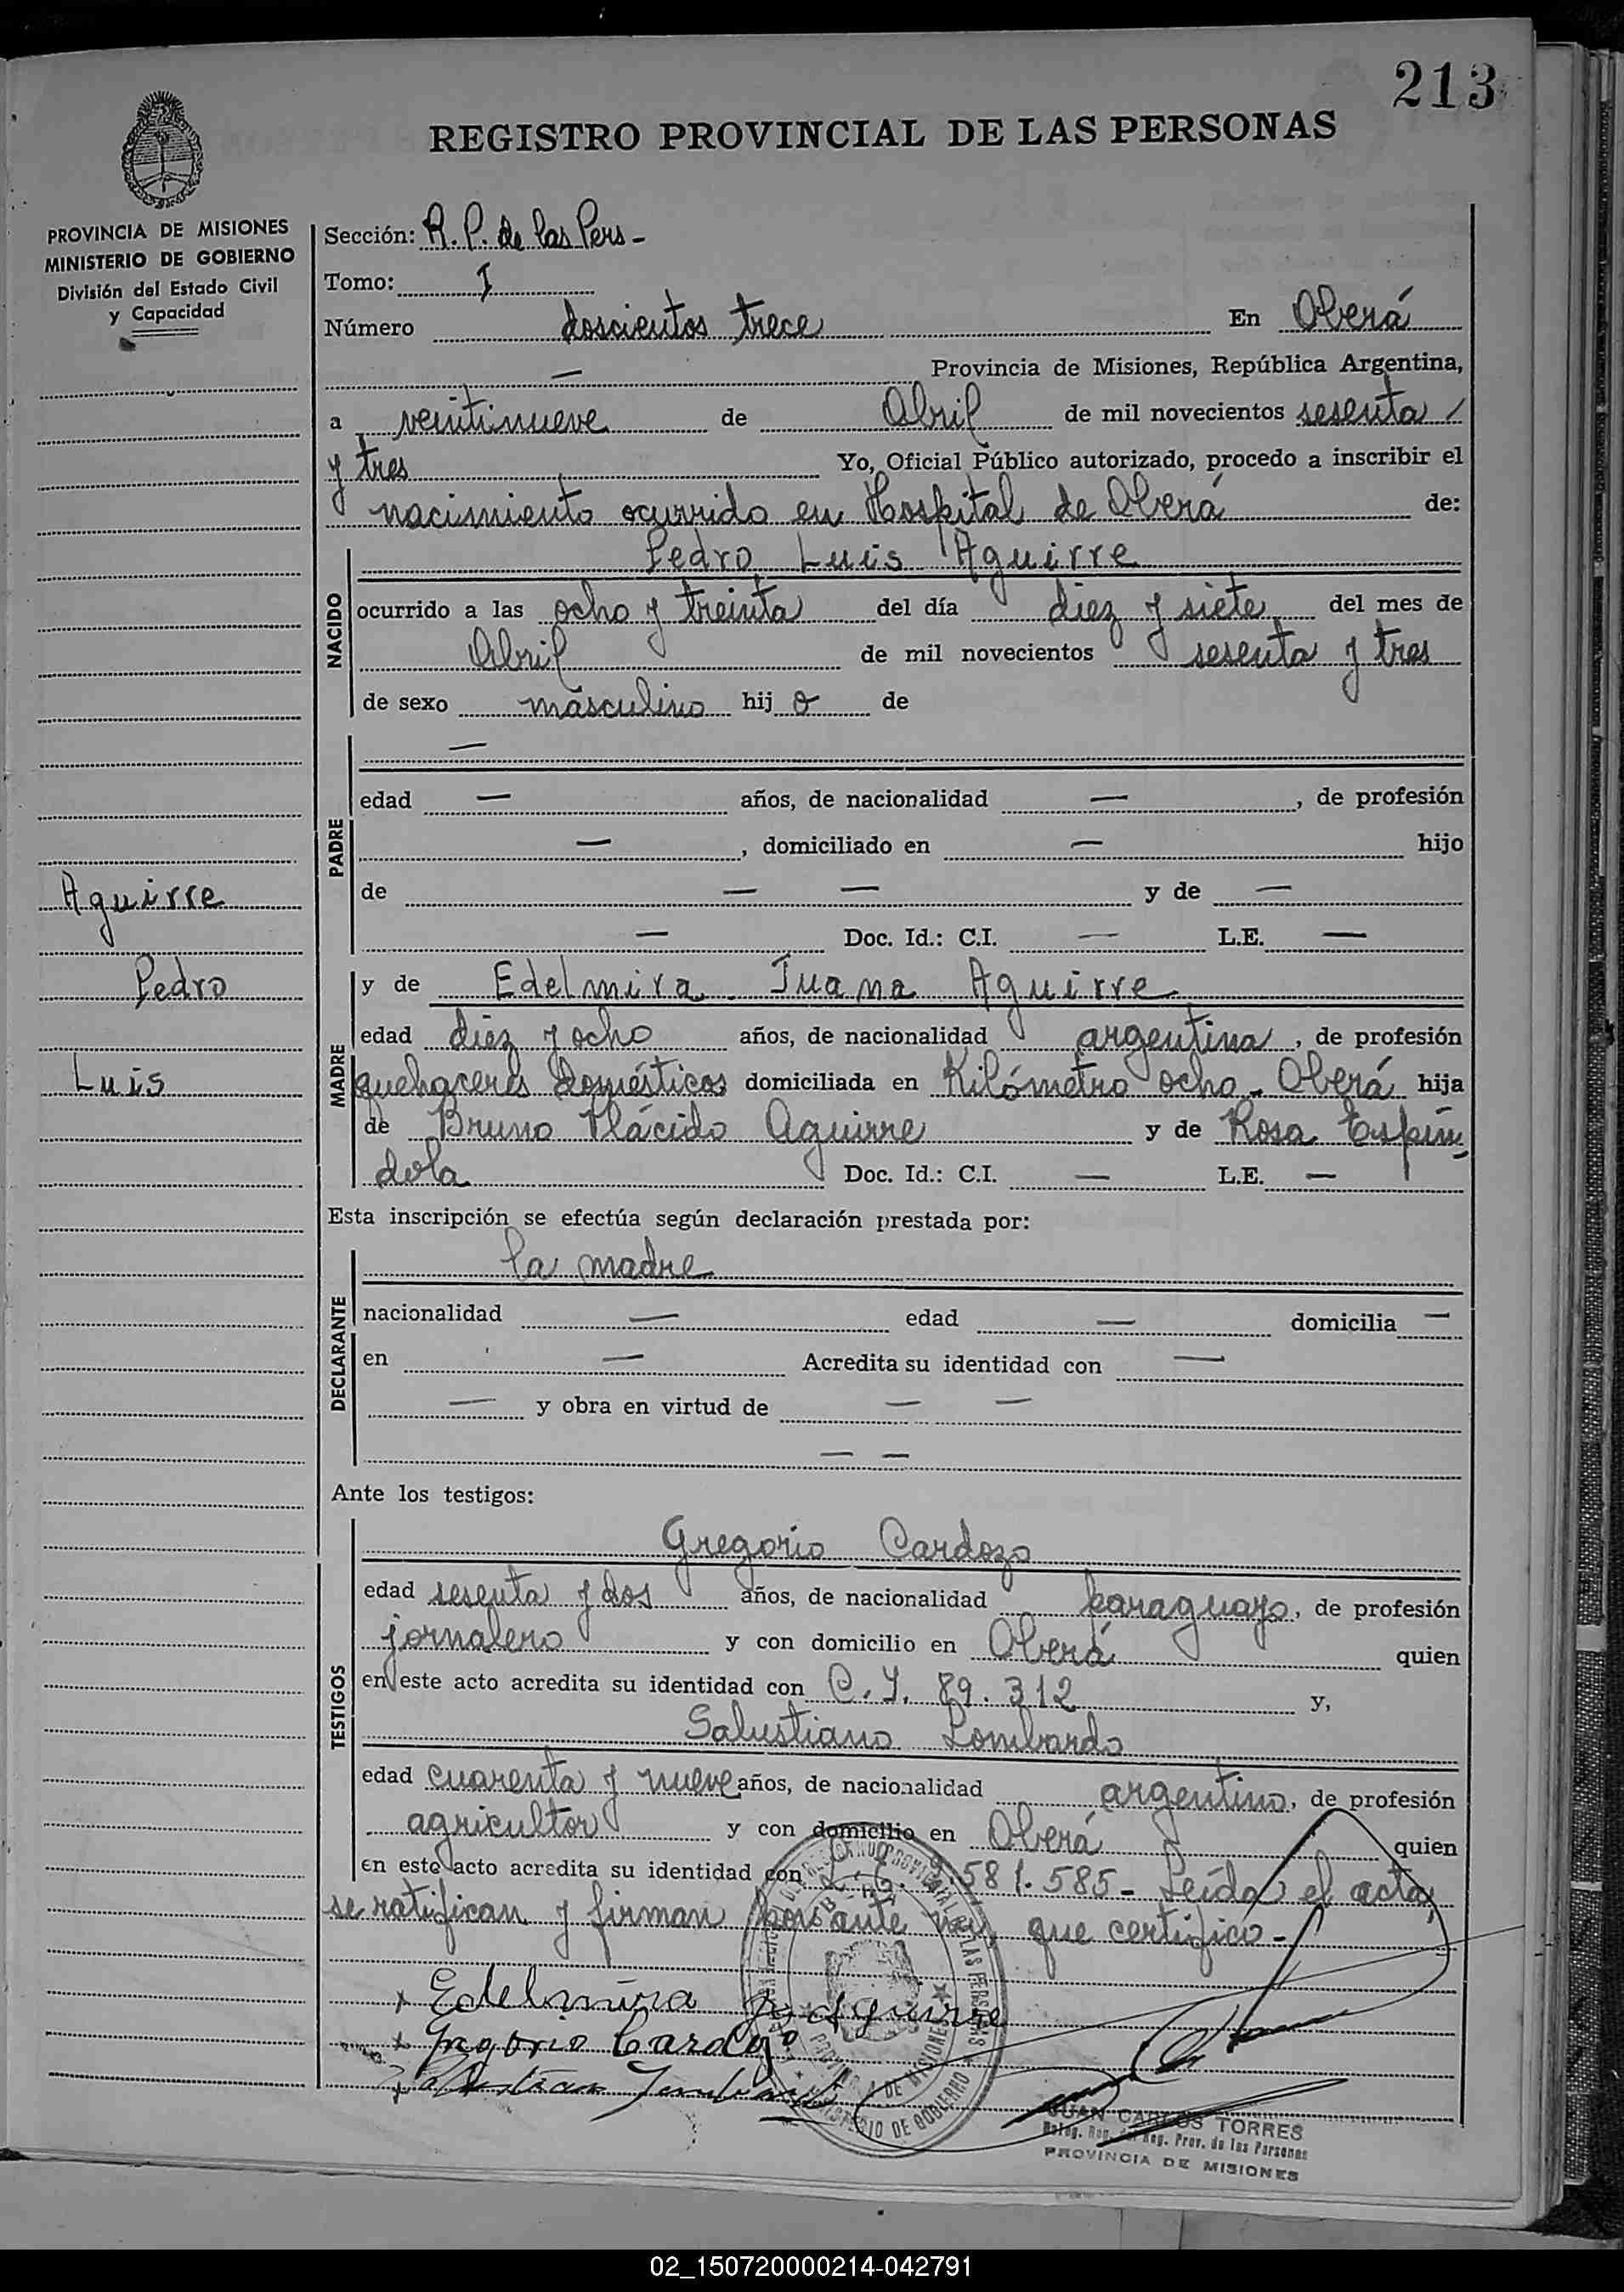 213
REGISTRO PROVINCIAL DE LAS PERSONAS
PROVINCIA DE MISIONES
MINISTERIO DE GOBIERNO
División del Estado Civil
y Capacidad
Sección: R. P. de las Pers -
Tomo: I
Número doscientos trece En Oberá
— Provincia de Misiones, República Argentina,
a veintinueve de Abril de mil novecientos sesenta /
y tres Yo, Oficial Público autorizado, procedo a inscribir el
nacimiento ocurrido en Hospital de Oberá de:
NACIDO
Pedro Luis Aguirre
ocurrido a las ocho y treinta del día diez y siete del mes de
Abril de mil novecientos sesenta y tres
de sexo masculino hij o de
PADRE
—
edad — años, de nacionalidad —, de profesión
—, domiciliado en — hijo
de — — y de —
— Doc. Id.: C.I. — L.E. —
Aguirre
Pedro
Luis
MADRE
y de Edelmira Juana Aguirre
edad diez y ocho años, de nacionalidad argentina, de profesión
quehaceres domésticos domiciliada en Kilómetro ocho - Oberá hija
de Bruno Plácido Aguirre y de Rosa Espín-
dola Doc. Id.: C.I. — L.E. —
Esta inscripción se efectúa según declaración prestada por:
DECLARANTE
la madre
nacionalidad — edad — domicilia —
en — Acredita su identidad con —
— y obra en virtud de — —
— —
Ante los testigos:
TESTIGOS
Gregorio Cardozo
edad sesenta y dos años, de nacionalidad paraguayo, de profesión
jornalero y con domicilio en Oberá quien
en este acto acredita su identidad con C. I. 89.312 y,
Salustiano Lombardo
edad cuarenta y nueve años, de nacionalidad argentino, de profesión
agricultor y con domicilio en Oberá quien
en este acto acredita su identidad con 581.585 - Leída el acta,
se ratifican y firman por ante mi, que certifico -
x Edelmira J. Aguirre
x Gregorio Cardozo
x
PROVINCIA DE MISIONES
MINISTERIO DE GOBIERNO
JUAN CARLOS TORRES
Reg. Prov. de las Personas
PROVINCIA DE MISIONES
02_150720000214-042791